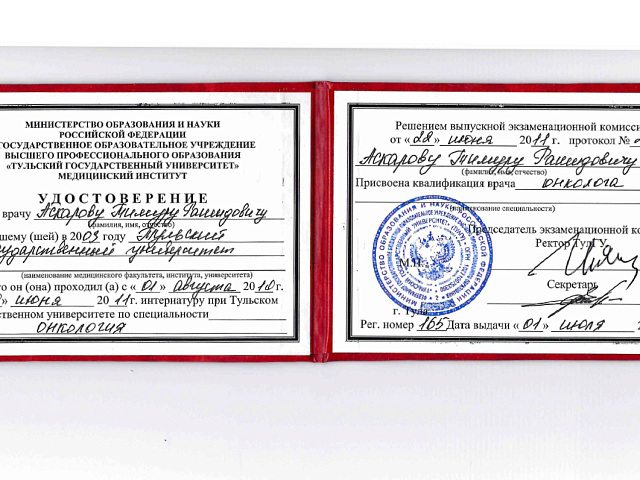 МИНИСТЕРСТВО ОБРАЗОВАНИЯ И НАУКИ
РОССИЙСКОЙ ФЕДЕРАЦИИ
ГОСУДАРСТВЕННОЕ ОБРАЗОВАТЕЛЬНОЕ УЧРЕЖДЕНИЕ
ВЫСШЕГО ПРОФЕССИОНАЛЬНОГО ОБРАЗОВАНИЯ
«ТУЛЬСКИЙ ГОСУДАРСТВЕННЫЙ УНИВЕРСИТЕТ»
МЕДИЦИНСКИЙ ИНСТИТУТ
УДОСТОВЕРЕНИЕ
врачу Аскарову Тимуру Рашидовичу
(фамилия, имя, отчество)
шему (шей) в 2003 году
государственный университет
(наименование медицинского факультета, института, университета)
го он (она) проходил (а) с « 01 » августа 2010 г.
июня 2011г. интернатуру при Тульском
ственном университете по специальности
онкология
Решением выпускной экзаменационной комисси
от « 22 » июня 2011 г. протокол №
Аскарову Тимуру Рашидовичу
(фамилия, имя, отчество)
Присвоена квалификация врача онколога
(наименование специальности)
Председатель экзаменационной ко
Ректор ТулГУ
М.П.
Секретарь
г. Тула
Рег. номер 165 Дата выдачи « 01 » июля